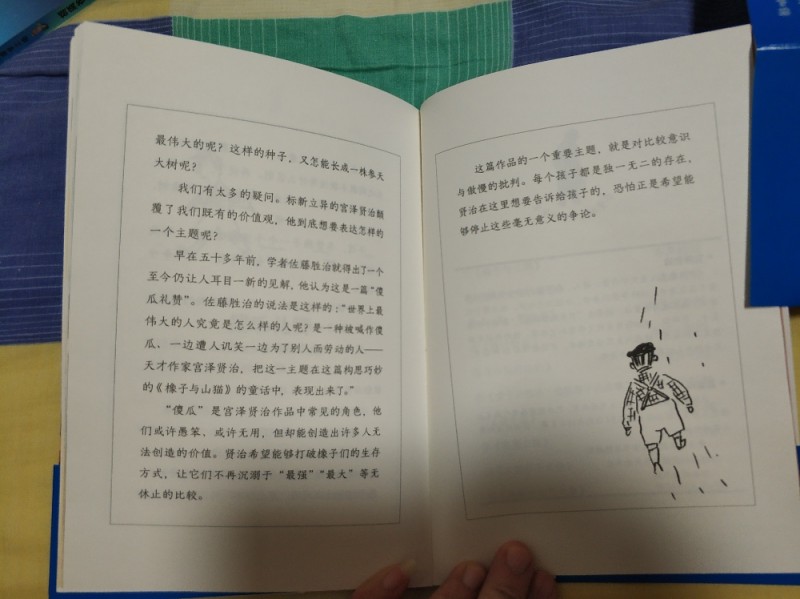 最伟大的呢？这样的种子，又怎能长成一株参天
大树呢？
我们有太多的疑问。标新立异的宫泽贤治颠
覆了我们既有的价值观，他到底想要表达怎样的
一个主题呢？
早在五十多年前，学者佐藤胜治就得出了一个
至今仍让人耳目一新的见解，他认为这是一篇“傻
瓜礼赞”。佐藤胜治的说法是这样的：“世界上最
伟大的人究竟是怎么样的人呢？是一种被喊作傻
瓜、一边遭人讥笑一边为了别人而劳动的人——
天才作家宫泽贤治，把这一主题在这篇构思巧妙
的《橡子与山猫》的童话中，表现出来了。”
“傻瓜”是宫泽贤治作品中常见的角色，他
们或许愚笨、或许无用，但却能创造出许多人无
法创造的价值。贤治希望能够打破橡子们的生存
方式，让它们不再沉溺于“最强”“最大”等无
休止的比较。
这篇作品的一个重要主题，就是对比较意识
与傲慢的批判。每个孩子都是独一无二的存在，
贤治在这里想要告诉给孩子的，恐怕正是希望能
够停止这些毫无意义的争论。